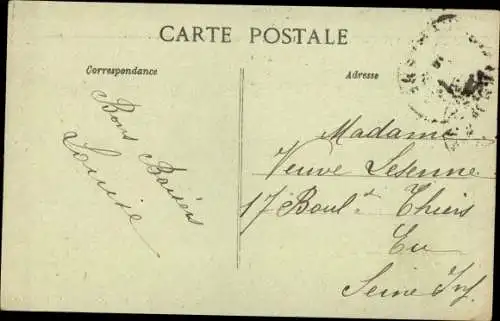 CARTE POSTALE
Correspondance
Adresse
Bons Baisers
Louise
Madame
Veuve Lesenne
17 Boul.d Thiers
Eu
Seine Inf.